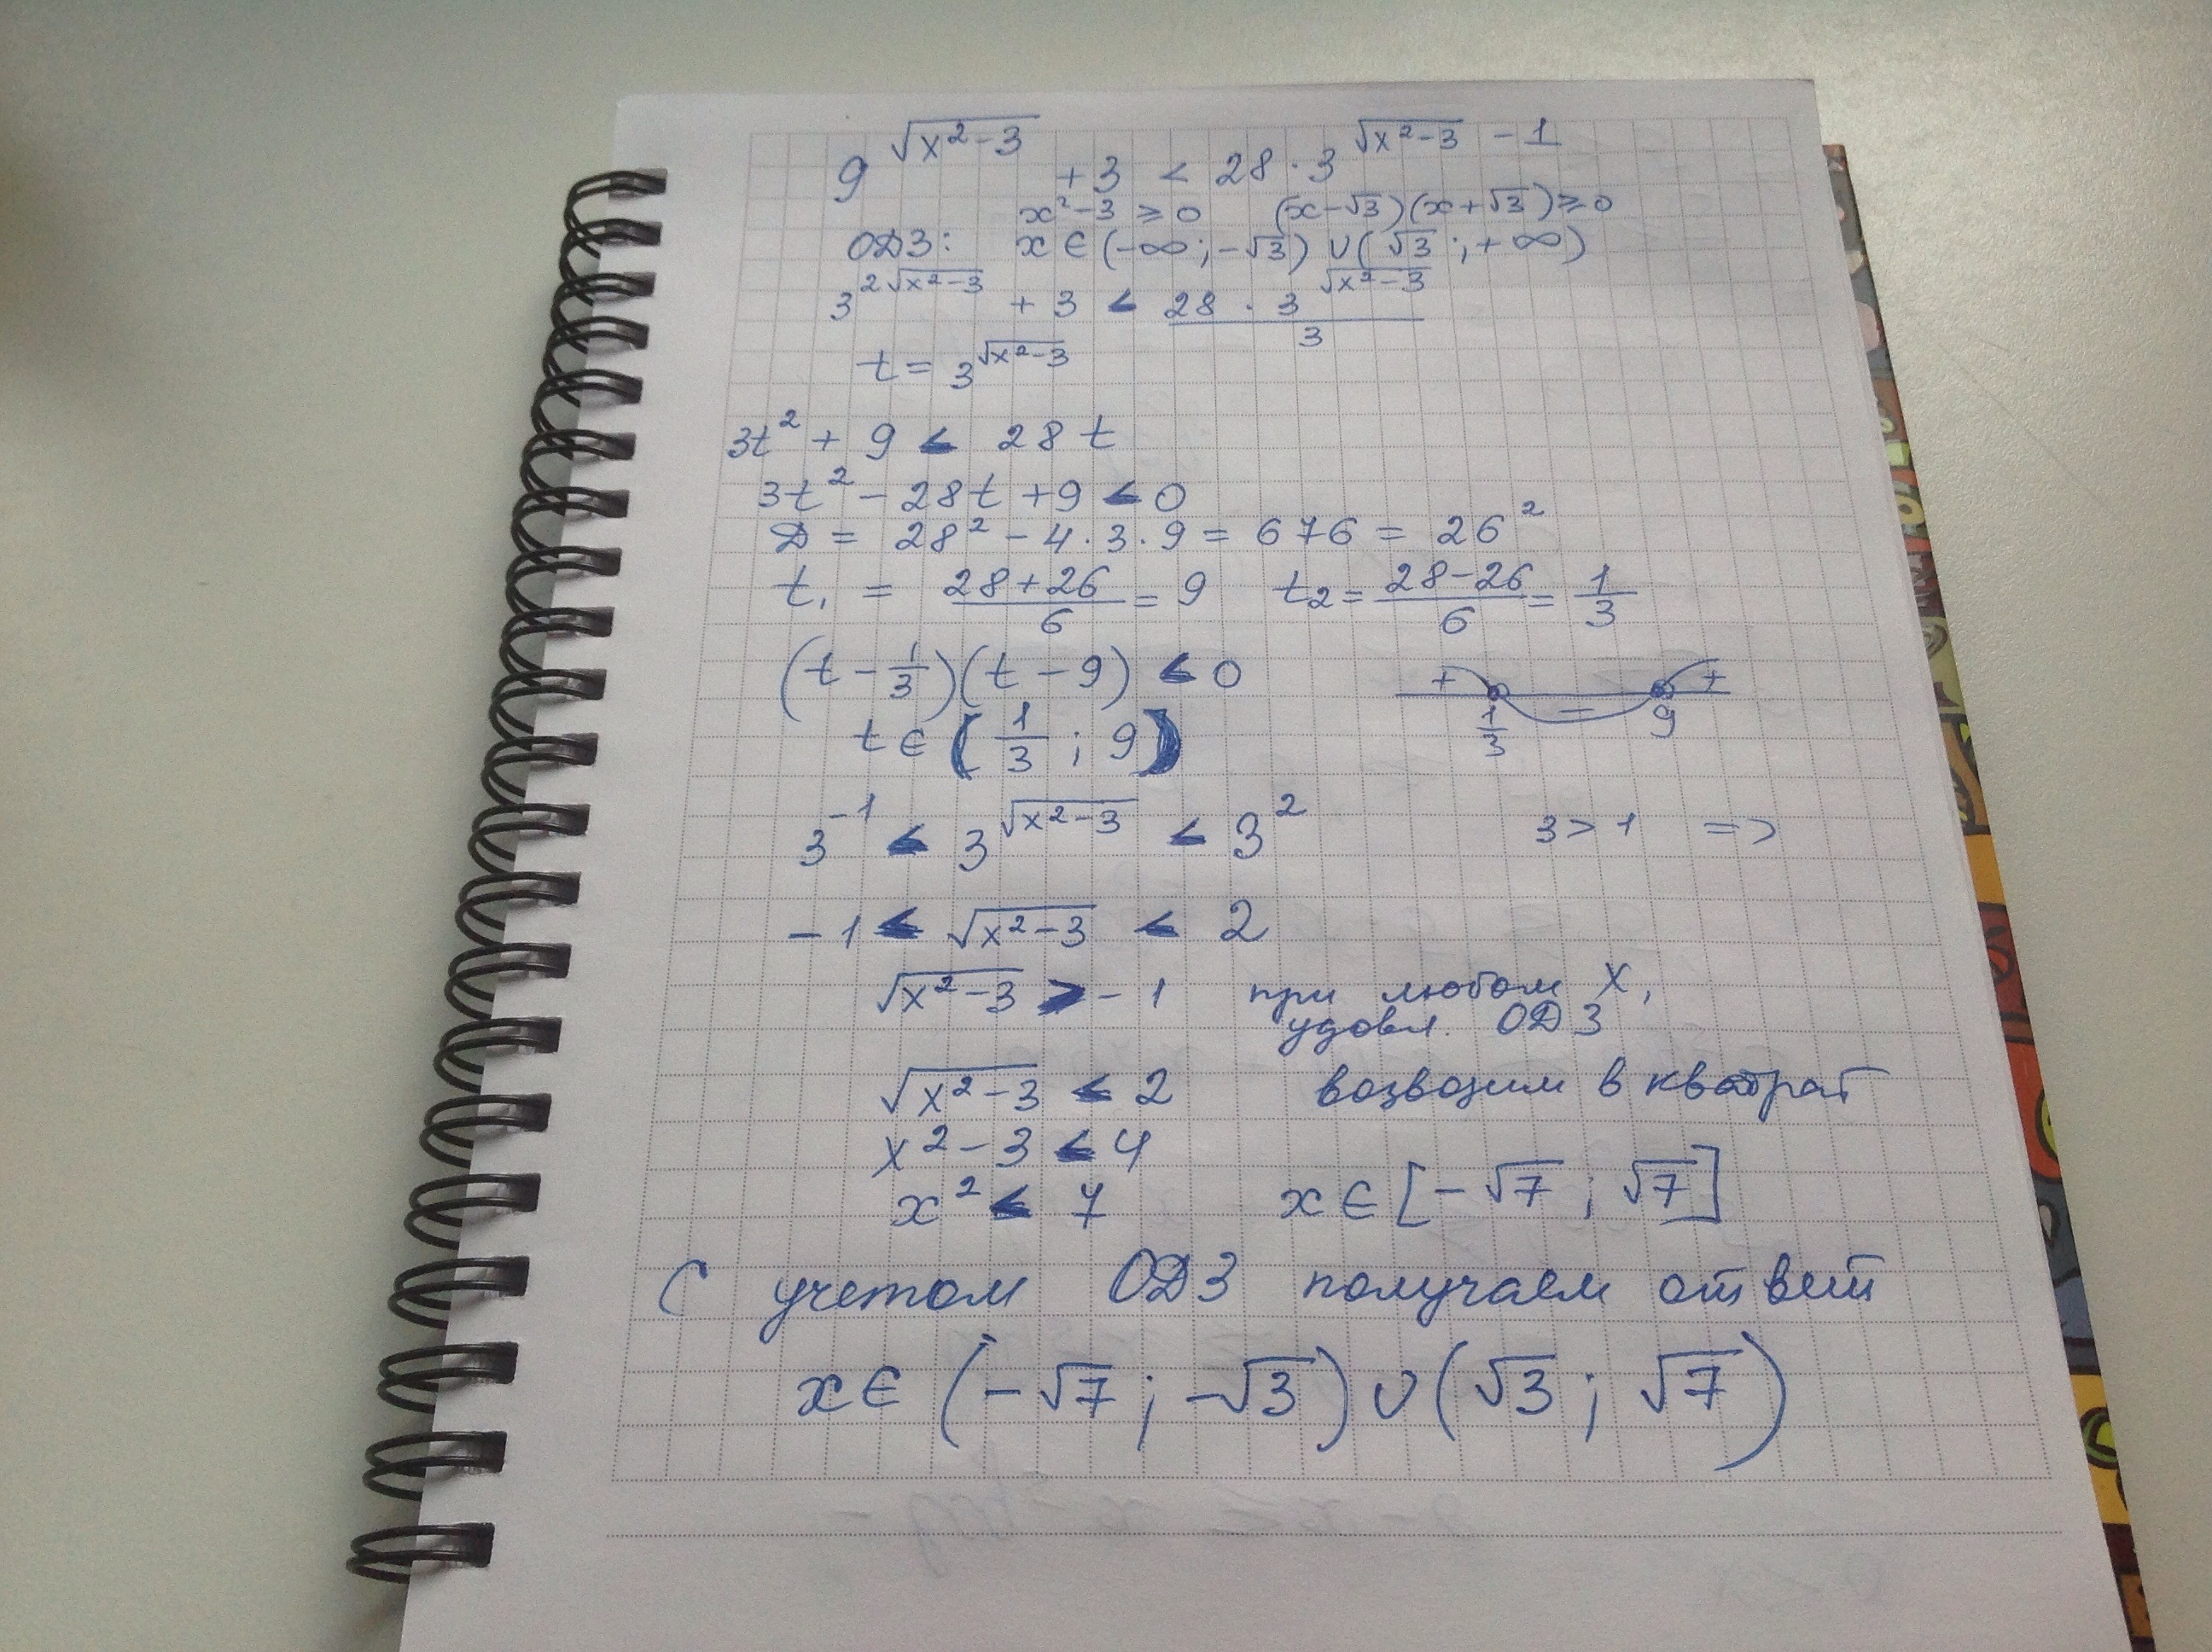 9^√(x²-3) + 3 < 28 · 3^(√(x²-3) - 1)
x²-3 ≥ 0 (x-√3)(x+√3) ≥ 0
ОДЗ: x ∈ (-∞; -√3) ∪ (√3; +∞)
3^(2√(x²-3)) + 3 < (28 · 3^√(x²-3))/3
t = 3^√(x²-3)
3t² + 9 < 28t
3t² - 28t + 9 < 0
D = 28² - 4·3·9 = 676 = 26²
t₁ = (28+26)/6 = 9 t₂ = (28-26)/6 = 1/3
(t - 1/3)(t - 9) < 0 + - +
1/3 9
t ∈ (1/3; 9)
3^-1 < 3^√(x²-3) < 3² 3 > 1 =>
-1 < √(x²-3) < 2
√(x²-3) > -1 при любом x,
удовл. ОДЗ
√(x²-3) < 2 возводим в квадрат
x² - 3 < 4
x² < 7 x ∈ [-√7; √7]
С учетом ОДЗ получаем ответ
x ∈ (-√7; -√3) ∪ (√3; √7)